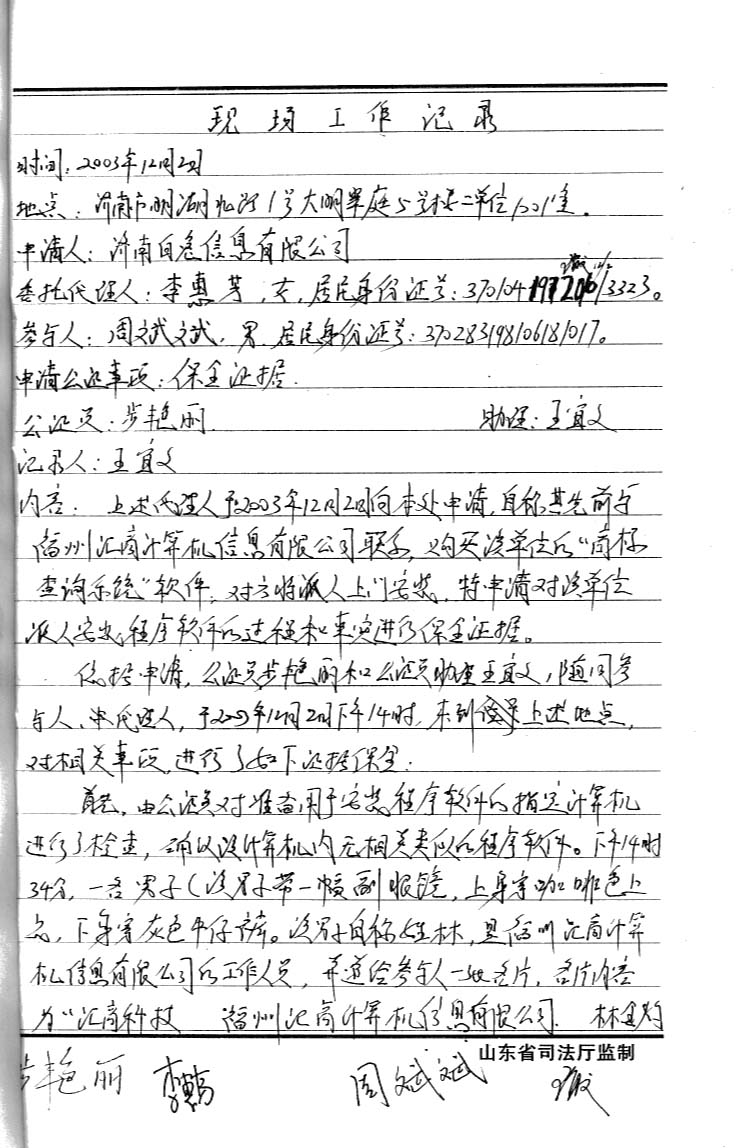 现场工作记录
时间：2003年12月2日
地点：济南市明湖北路1号大明翠庭5号楼二单位1001室.
申请人：济南白兔信息有限公司
委托代理人：李惠芳，女，居民身份证号：3323。
参与人：周文斌，男，居民身份证号：370283198106181017。
申请公证事项：保全证据.
公证员：步艳丽 助理：王宜文
记录人：王宜文
内容：上述代理人于2003年12月2日向本处申请，自称其先前与
福州汇商计算机信息有限公司联系，购买该单位的“商标
查询系统”软件，对方将派人上门安装，特申请对该单位
派人安装程序软件的过程和事实进行保全证据。
依据申请，公证员步艳丽和公证员助理王宜文，随同参
与人、代理人，于2003年12月2日下午14时，来到上述地点，
对相关事项，进行了如下证据保全：
首先，由公证员对准备用于安装程序软件的指定计算机
进行了检查，确认该计算机内无相关类似的程序软件。下午14时
34分，一名男子（该男子带一幅副眼镜，上身穿咖啡色上
衣，下身穿灰色牛仔裤。该男子自称姓林，是福州汇商计算
机信息有限公司的工作人员，并递给参与人一张名片，名片内容
为“汇商科技 福州汇商计算机信息有限公司 林
山东省司法厅监制
步艳丽 李惠芳 周文斌